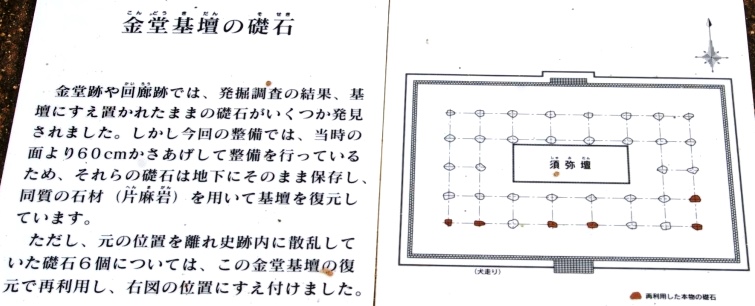 こんどうきだん そせき
金堂基壇の礎石
かいろう
金堂跡や回廊跡では、発掘調査の結果、基
壇にすえ置かれたままの礎石がいくつか発見
されました。しかし今回の整備では、当時の
面より60cmかさあげして整備を行っている
ため、それらの礎石は地下にそのまま保存し、
へんまがん
同質の石材（片麻岩）を用いて基壇を復元し
ています。
ただし、元の位置を離れ史跡内に散乱して
いた礎石6個については、この金堂基壇の復
元で再利用し、右図の位置にすえ付けました。
しゅみだん
須弥壇
（犬走り）
再利用した本物の礎石